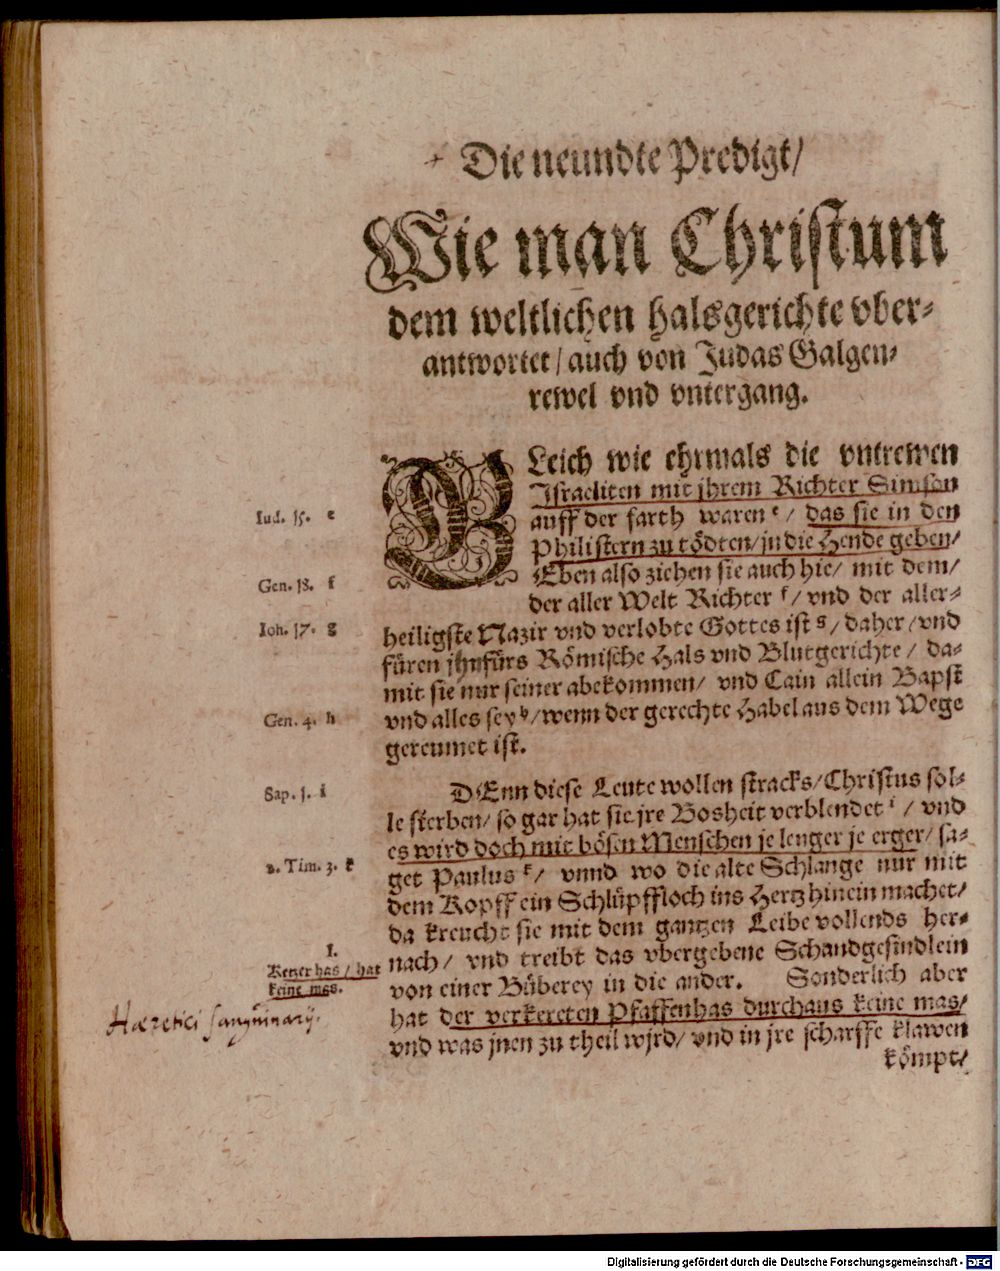 Die neundte Predigt/
Wie man Christum
dem weltlichen halsgerichte vber-
antwortet / auch von Judas Galgen-
rewel vnd vntergang.
GLeich wie ehrmals die vntrewen
Israeliten mit jhrem Richter Simson
auff der farth waren e / das sie in den
Philistern zu tödten / in die Hende geben /
Eben also ziehen sie auch hie / mit dem /
der aller Welt Richter f / vnd der aller-
heiligste Nazir vnd verlobte Gottes ist g / daher / vnd
füren jhn fürs Römische Hals vnd Blutgerichte / da-
mit sie nur seiner abekommen / vnd Cain allein Bapst
vnd alles sey h / wenn der gerechte Habel aus dem Wege
gereumet ist.
DEnn diese Leute wollen stracks / Christus sol-
le sterben / so gar hat sie jre Bosheit verblendet i / vnd
es wird doch mit bösen Menschen je lenger je erger / sa-
get Paulus k / vnnd wo die alte Schlange nur mit
dem Kopff ein Schlüpffloch ins Hertz hinein machet /
da kreucht sie mit dem gantzen Leibe vollends her-
nach / vnd treibt das vbergebene Schandgesindlein
von einer Büberey in die ander. Sonderlich aber
hat der verkereten Pfaffenhas durchaus keine mas /
vnd was jnen zu theil wjrd / vnd in jre scharffe klawen
kömpt /
Iud. 15. e
Gen. 18. f
Ioh. 17. g
Gen. 4. h
Sap. 1. i
2. Tim. 3. k
1.
Ketzer has / hat
keine mas.
Hæretici sanguinarij.
Digitalisierung gefördert durch die Deutsche Forschungsgemeinschaft - DFG